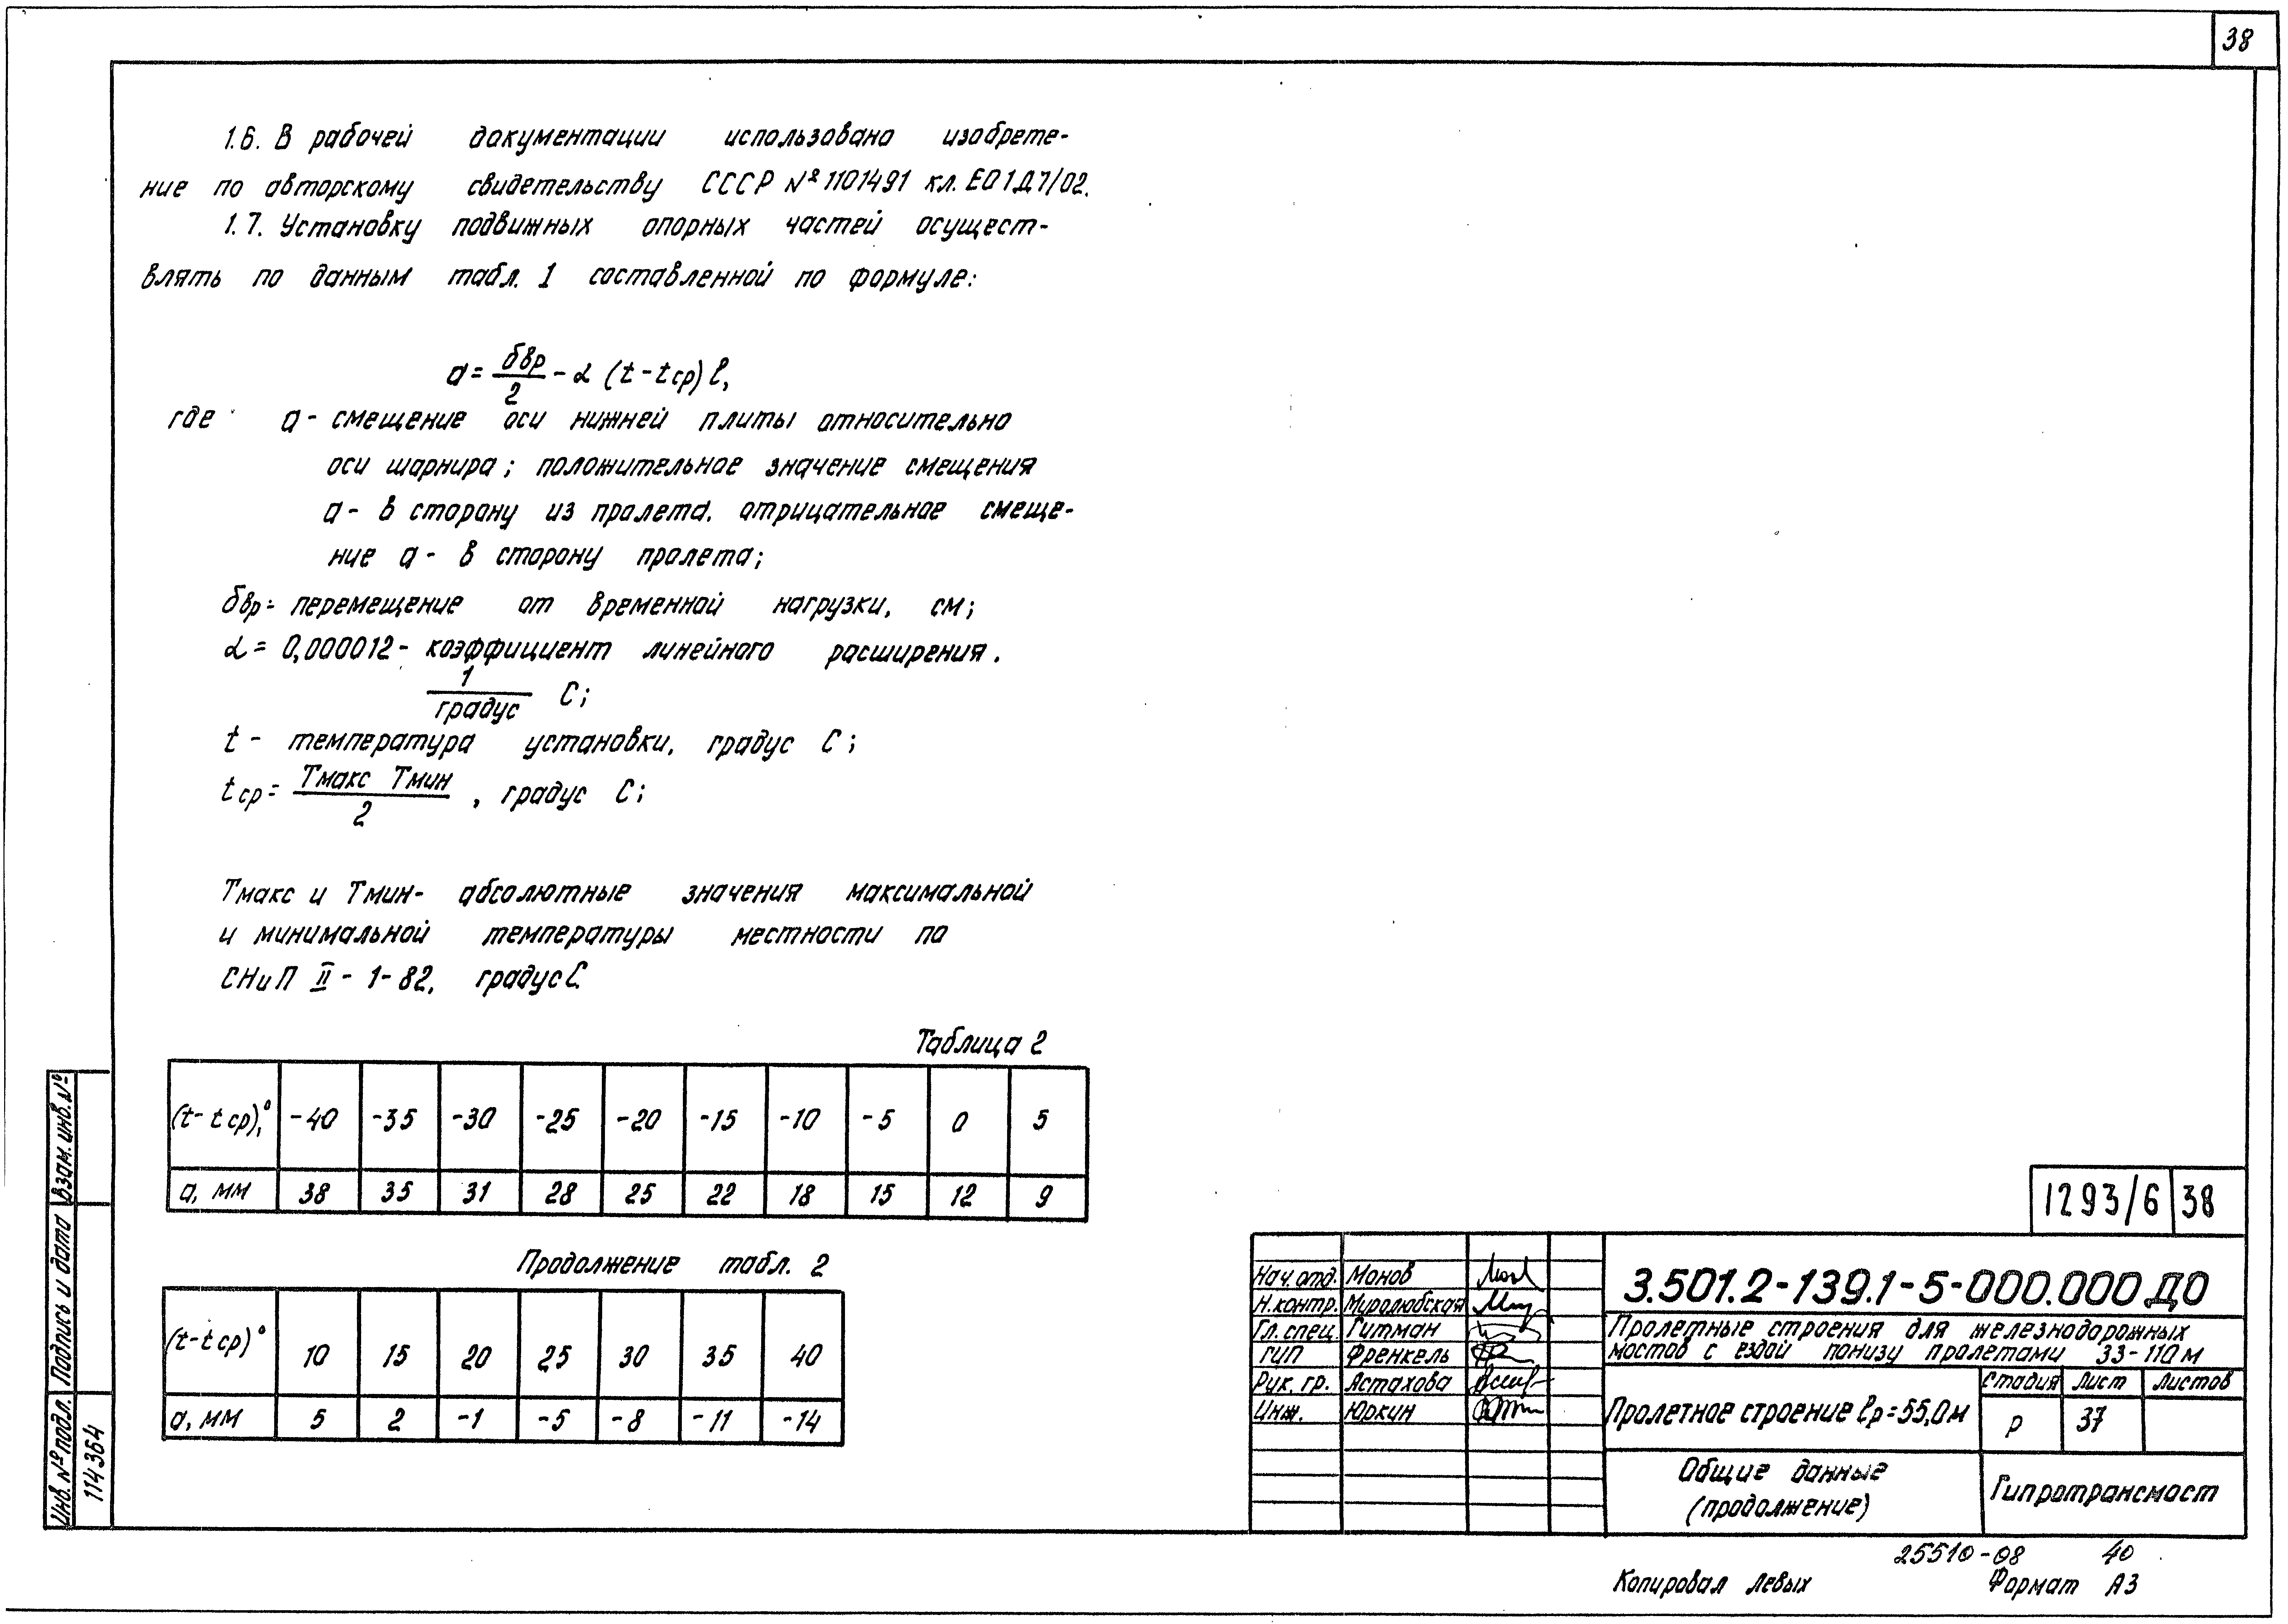 38
1.6. В рабочей документации использовано изобрете-
ние по авторскому свидетельству СССР №1101491 кл. E01Д7/02.
1.7. Установку подвижных опорных частей осущест-
влять по данным табл. 1 составленной по формуле:
a = бвр/2 - α (t - tср) ℓ,
где a - смещение оси нижней плиты относительно
оси шарнира; положительное значение смещения
a - в сторону из пролета. отрицательное смеще-
ние a - в сторону пролета;
бвр = перемещение от временной нагрузки, см;
α = 0,000012 - коэффициент линейного расширения.
1/градус С;
t - температура установки, градус С;
tср = Тмакс Тмин/2, градус С;
Тмакс и Тмин - абсолютные значения максимальной
и минимальной температуры местности по
СНиП II - 1-82, градус С.
Таблица 2
(t - tср),° -40 -35 -30 -25 -20 -15 -10 -5 0 5
a, мм 38 35 31 28 25 22 18 15 12 9
Продолжение табл. 2
(t - tср)° 10 15 20 25 30 35 40
a, мм 5 2 -1 -5 -8 -11 -14
Взам. инв. №
Подпись и дата
Инв. № подл.
114364
1293/6 38
Нач. отд. Монов
Н. контр. Муролюбская
Гл. спец. Гитман
ГИП Френкель
Рук. гр. Астахова
Инж. Юркин
3.501.2-139.1-5-000.000 ДО
Пролетные строения для железнодорожных
мостов с ездой понизу пролетами 33-110 м
Пролетное строение ℓр = 55,0 м
Стадия Лист Листов
Р 37
Общие данные
(продолжение)
Гипротрансмост
25510-08 40
Копировал Левых Формат А3